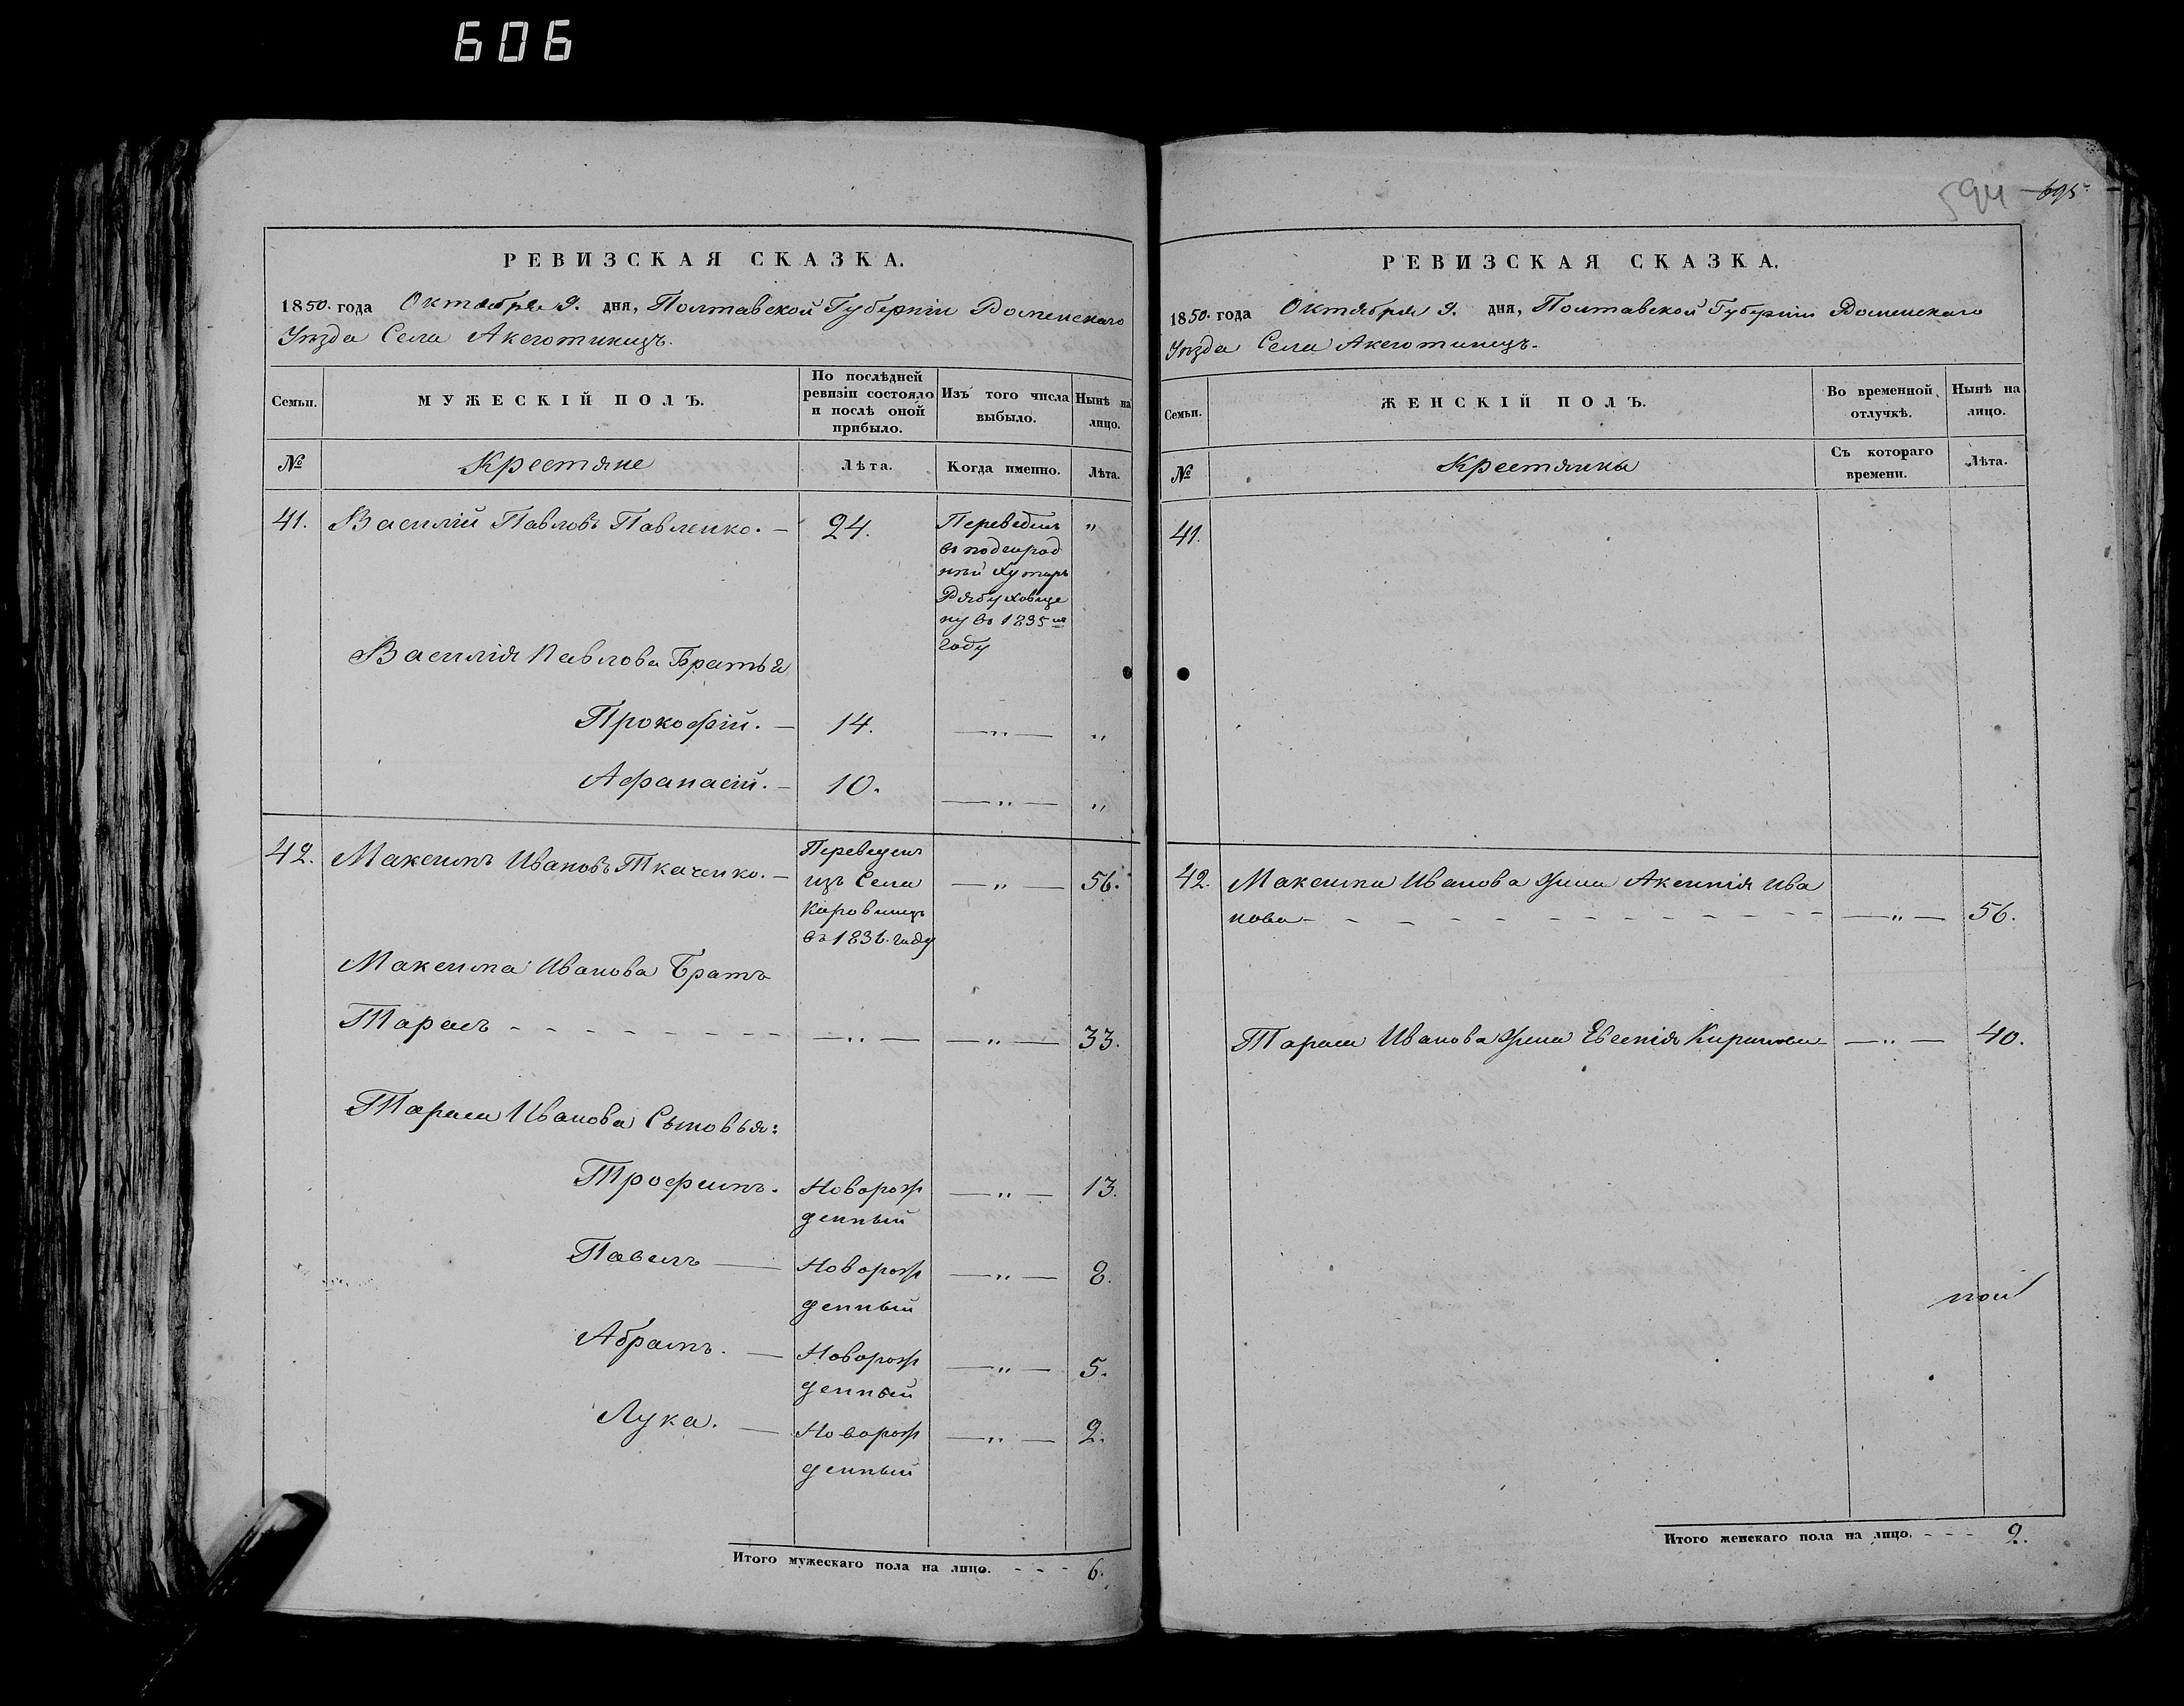 606
594 695
РЕВИЗСКАЯ СКАЗКА.
1850. года Октября 9. дня, Полтавской Губерніи Роменскаго
Уѣзда Села Аксютинецъ.
Семьи.
МУЖЕСКІЙ ПОЛЪ.
По послѣдней
ревизіи состояло
и послѣ оной
прибыло.
Изъ того числа
выбыло.
Нынѣ на
лицо.
№
Крестяне
Лѣта.
Когда именно.
Лѣта.
41. Василій Павловъ Павленко. — 24. Переведенъ "
въ подгород
ный Хуторъ
Рябуховще
ну въ 1835 м
году
Василія Павлова Братья
Прокофій. — 14. —„— „
Афанасій. — 10. —„— „
42. Максимъ Ивановъ Ткаченко. — Переведен —„— 56.
изъ Села
Коровинецъ
въ 1836. году
Максима Иванова Братъ
Тарасъ - - - - - - - - —„— —„— 33.
Тараса Иванова Сыновья:
Трофимъ. Новорож —„— 13.
денный
Павелъ — Новорож —„— 8.
денный
Абрамъ. — Новорож —„— 5.
денный
Лука. — Новорож —„— 2.
денный
Итого мужескаго пола на лицо. - - - 6.
РЕВИЗСКАЯ СКАЗКА.
1850. года Октября 9. дня, Полтавской Губерніи Роменскаго
Уѣзда Села Аксютинецъ.
Семьи.
ЖЕНСКІЙ ПОЛЪ.
Во временной
отлучкѣ.
Нынѣ на
лицо.
№
Крестянки
Съ котораго
времени.
Лѣта.
41.
42. Максима Иванова жена Аксинія Ива
нова - - - - - - - - - - - - —„— 56.
Тараса Иванова жена Евгенія Кирилова —„— 40.
ной
Итого женскаго пола на лицо. - - - 2.